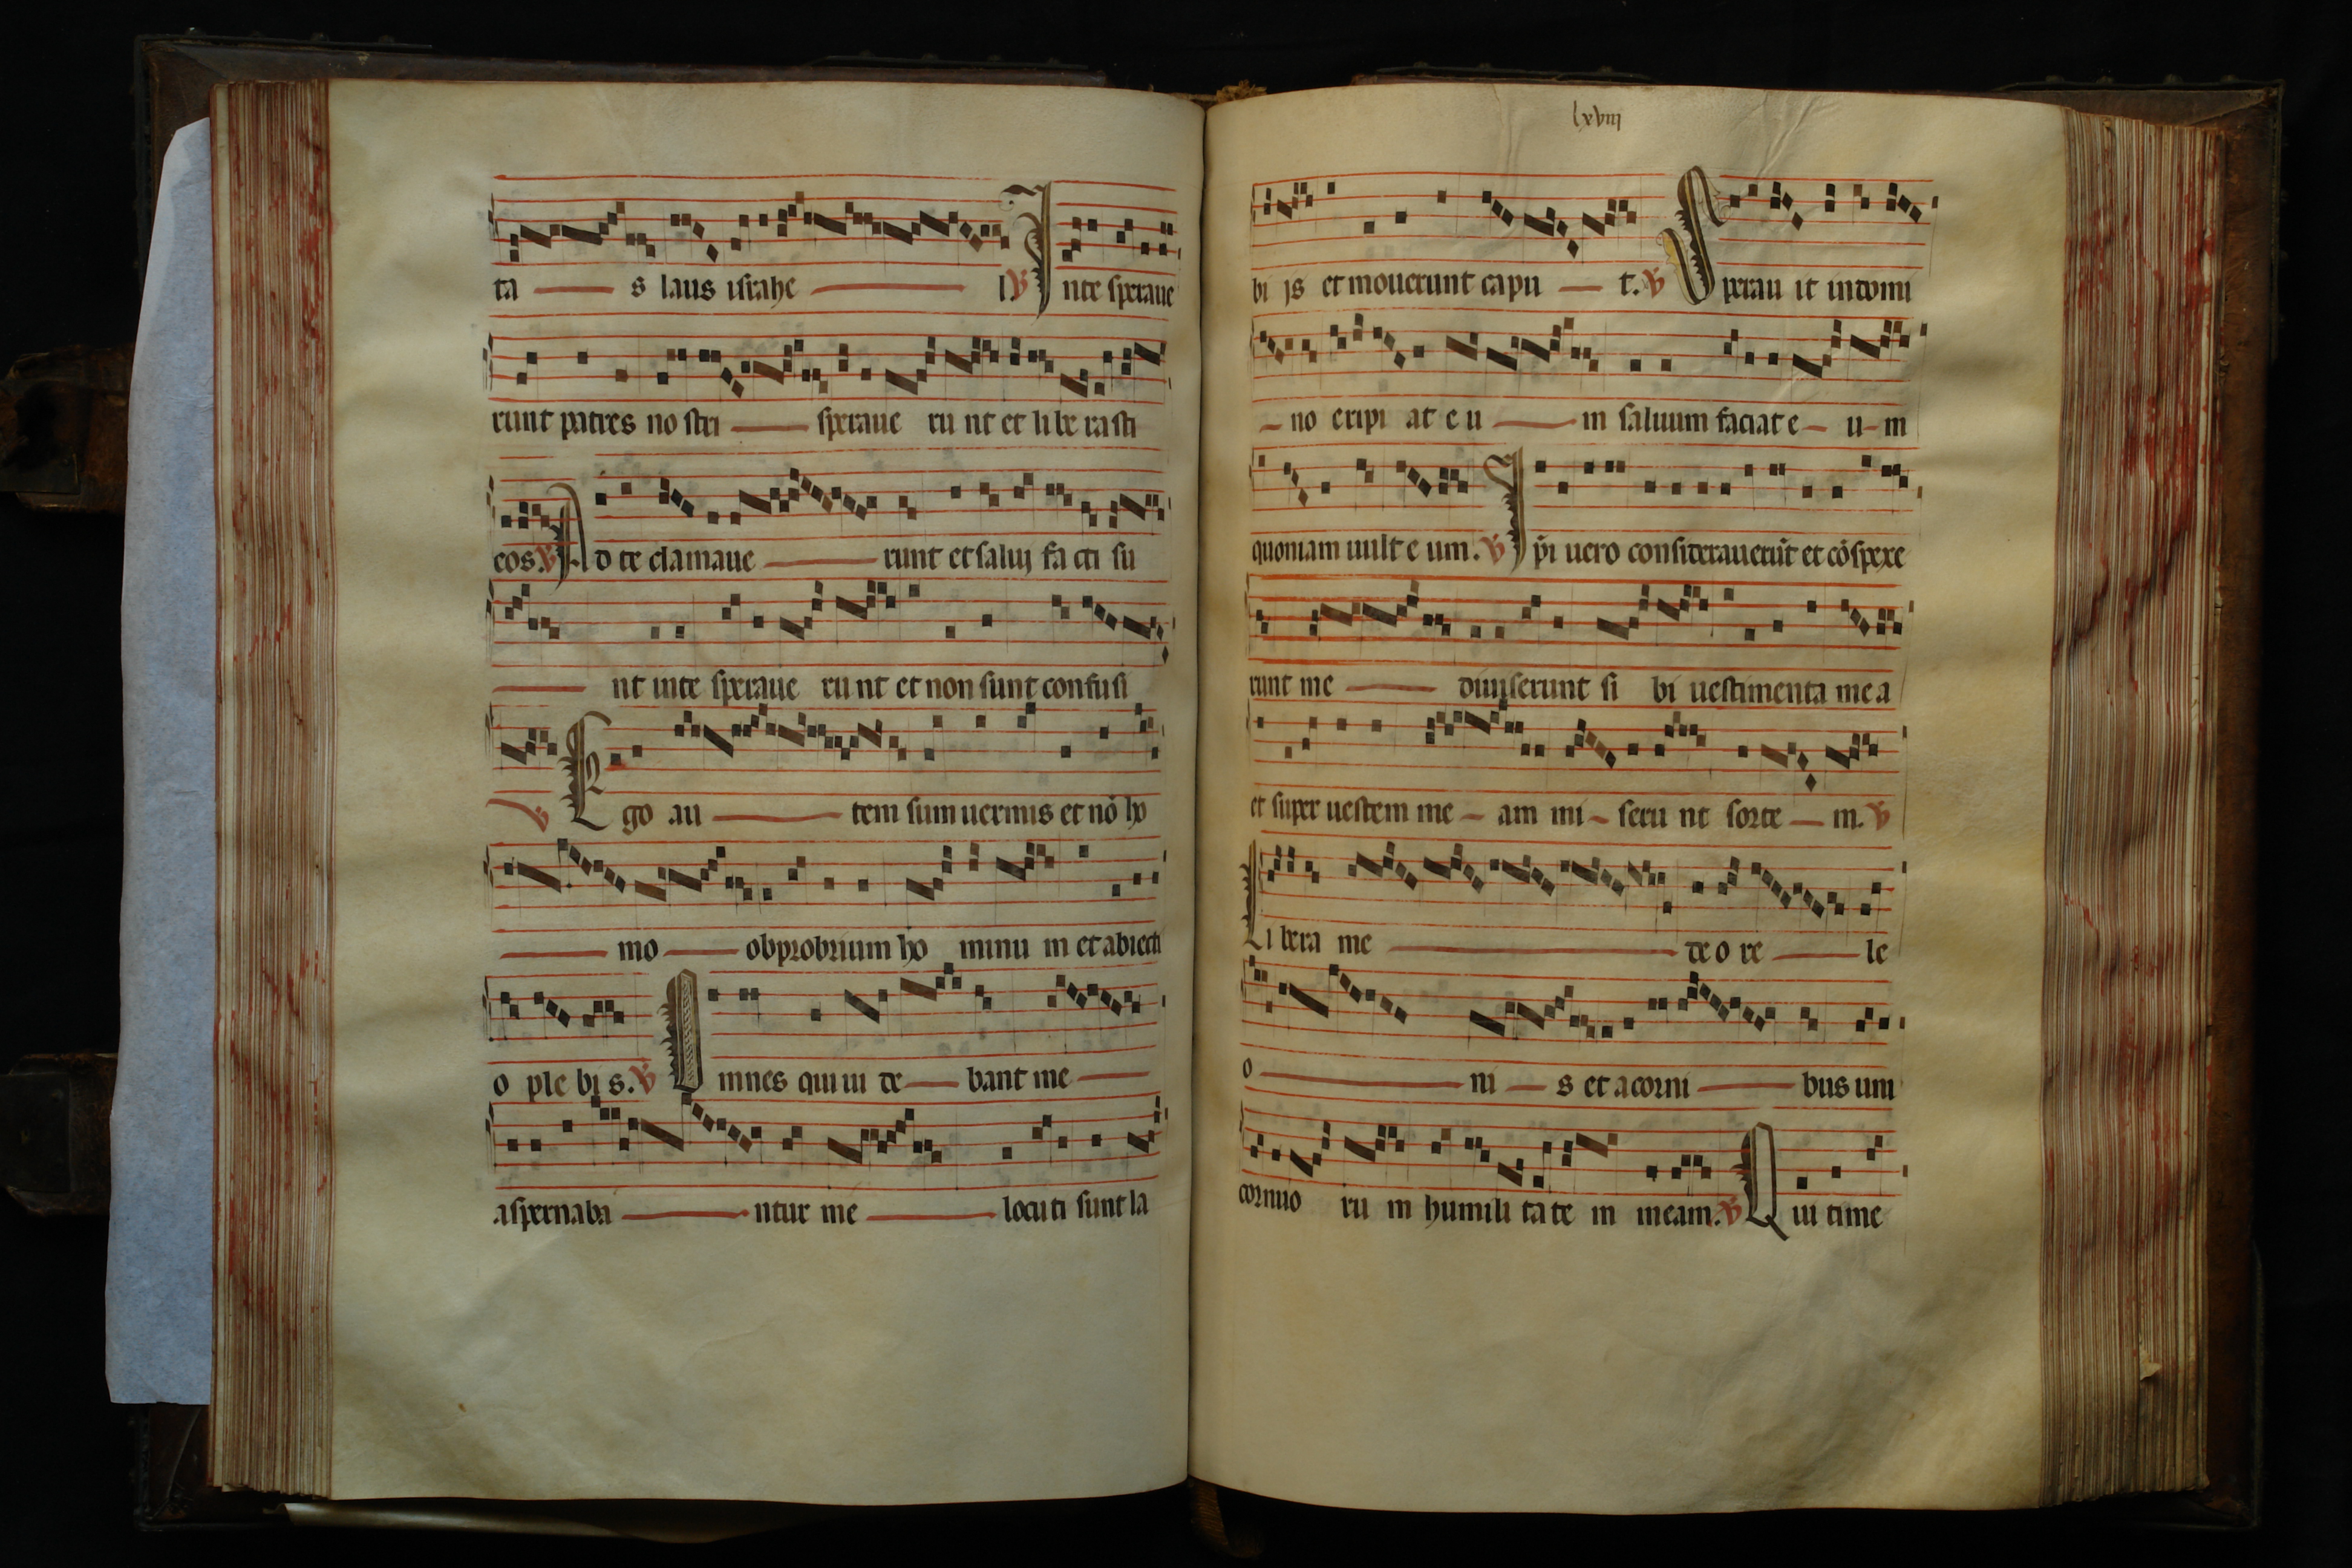 ta s laus israhe l ℣ Inte speraue
runt patres no stri speraue ru nt et li be ra sti
eos. ℣ Ad te clamaue runt et salui fa cti su
nt inte speraue ru nt et non sunt confusi
℣ Ego au tem sum uermis et nō ho
mo obprobrium ho minu m et abiecti
o ple bi s. ℣ Omnes qui ui de bant me
aspernaba ntur me locuti sunt la
lxviii
bi js et mouerunt capu t. ℣ Sperau it in domi
no eripi at e u m saluum faciat e u m
quoniam uult e um. ℣ Ipi uero considerauerūt et cōspexe
runt me diuiserunt si bi uestimenta mea
et super uestem me am mi seru nt sorte m. ℣
Libera me de o re le
o ni s et a corni bus uni
cornuo ru m humili ta te m meam. ℣ Qui time